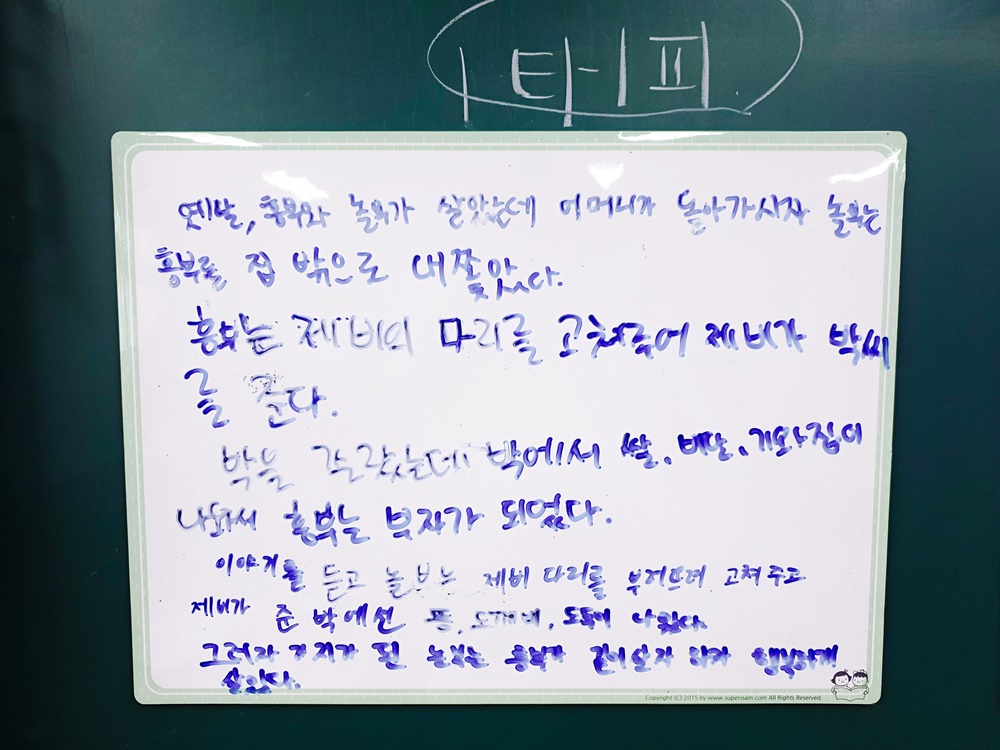 1타-1피
옛날, 흥부와 놀부가 살았는데 어머니가 돌아가시자 놀부는
흥부를 집 밖으로 내쫓았다.
흥부는 제비의 다리를 고쳐주어 제비가 박씨
를 준다.
박을 갈랐는데 박에서 쌀, 비단, 기와집이
나와서 흥부는 부자가 되었다.
이야기를 듣고 놀부는 제비 다리를 부러뜨려 고쳐주고
제비가 준 박에선 똥, 도깨비, 도둑이 나왔다.
그러자 거지가 된 놀부는 흥부가 같이 살자 하자 행복하게
살았다.
Copyright (C) 2015 by www.superssam.com All Rights Reserved.